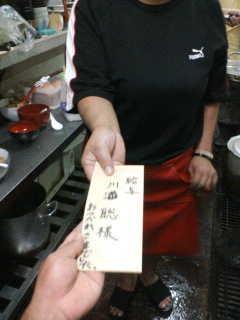 給与
川端 聡 様
おつかれさまでした。
PUMA